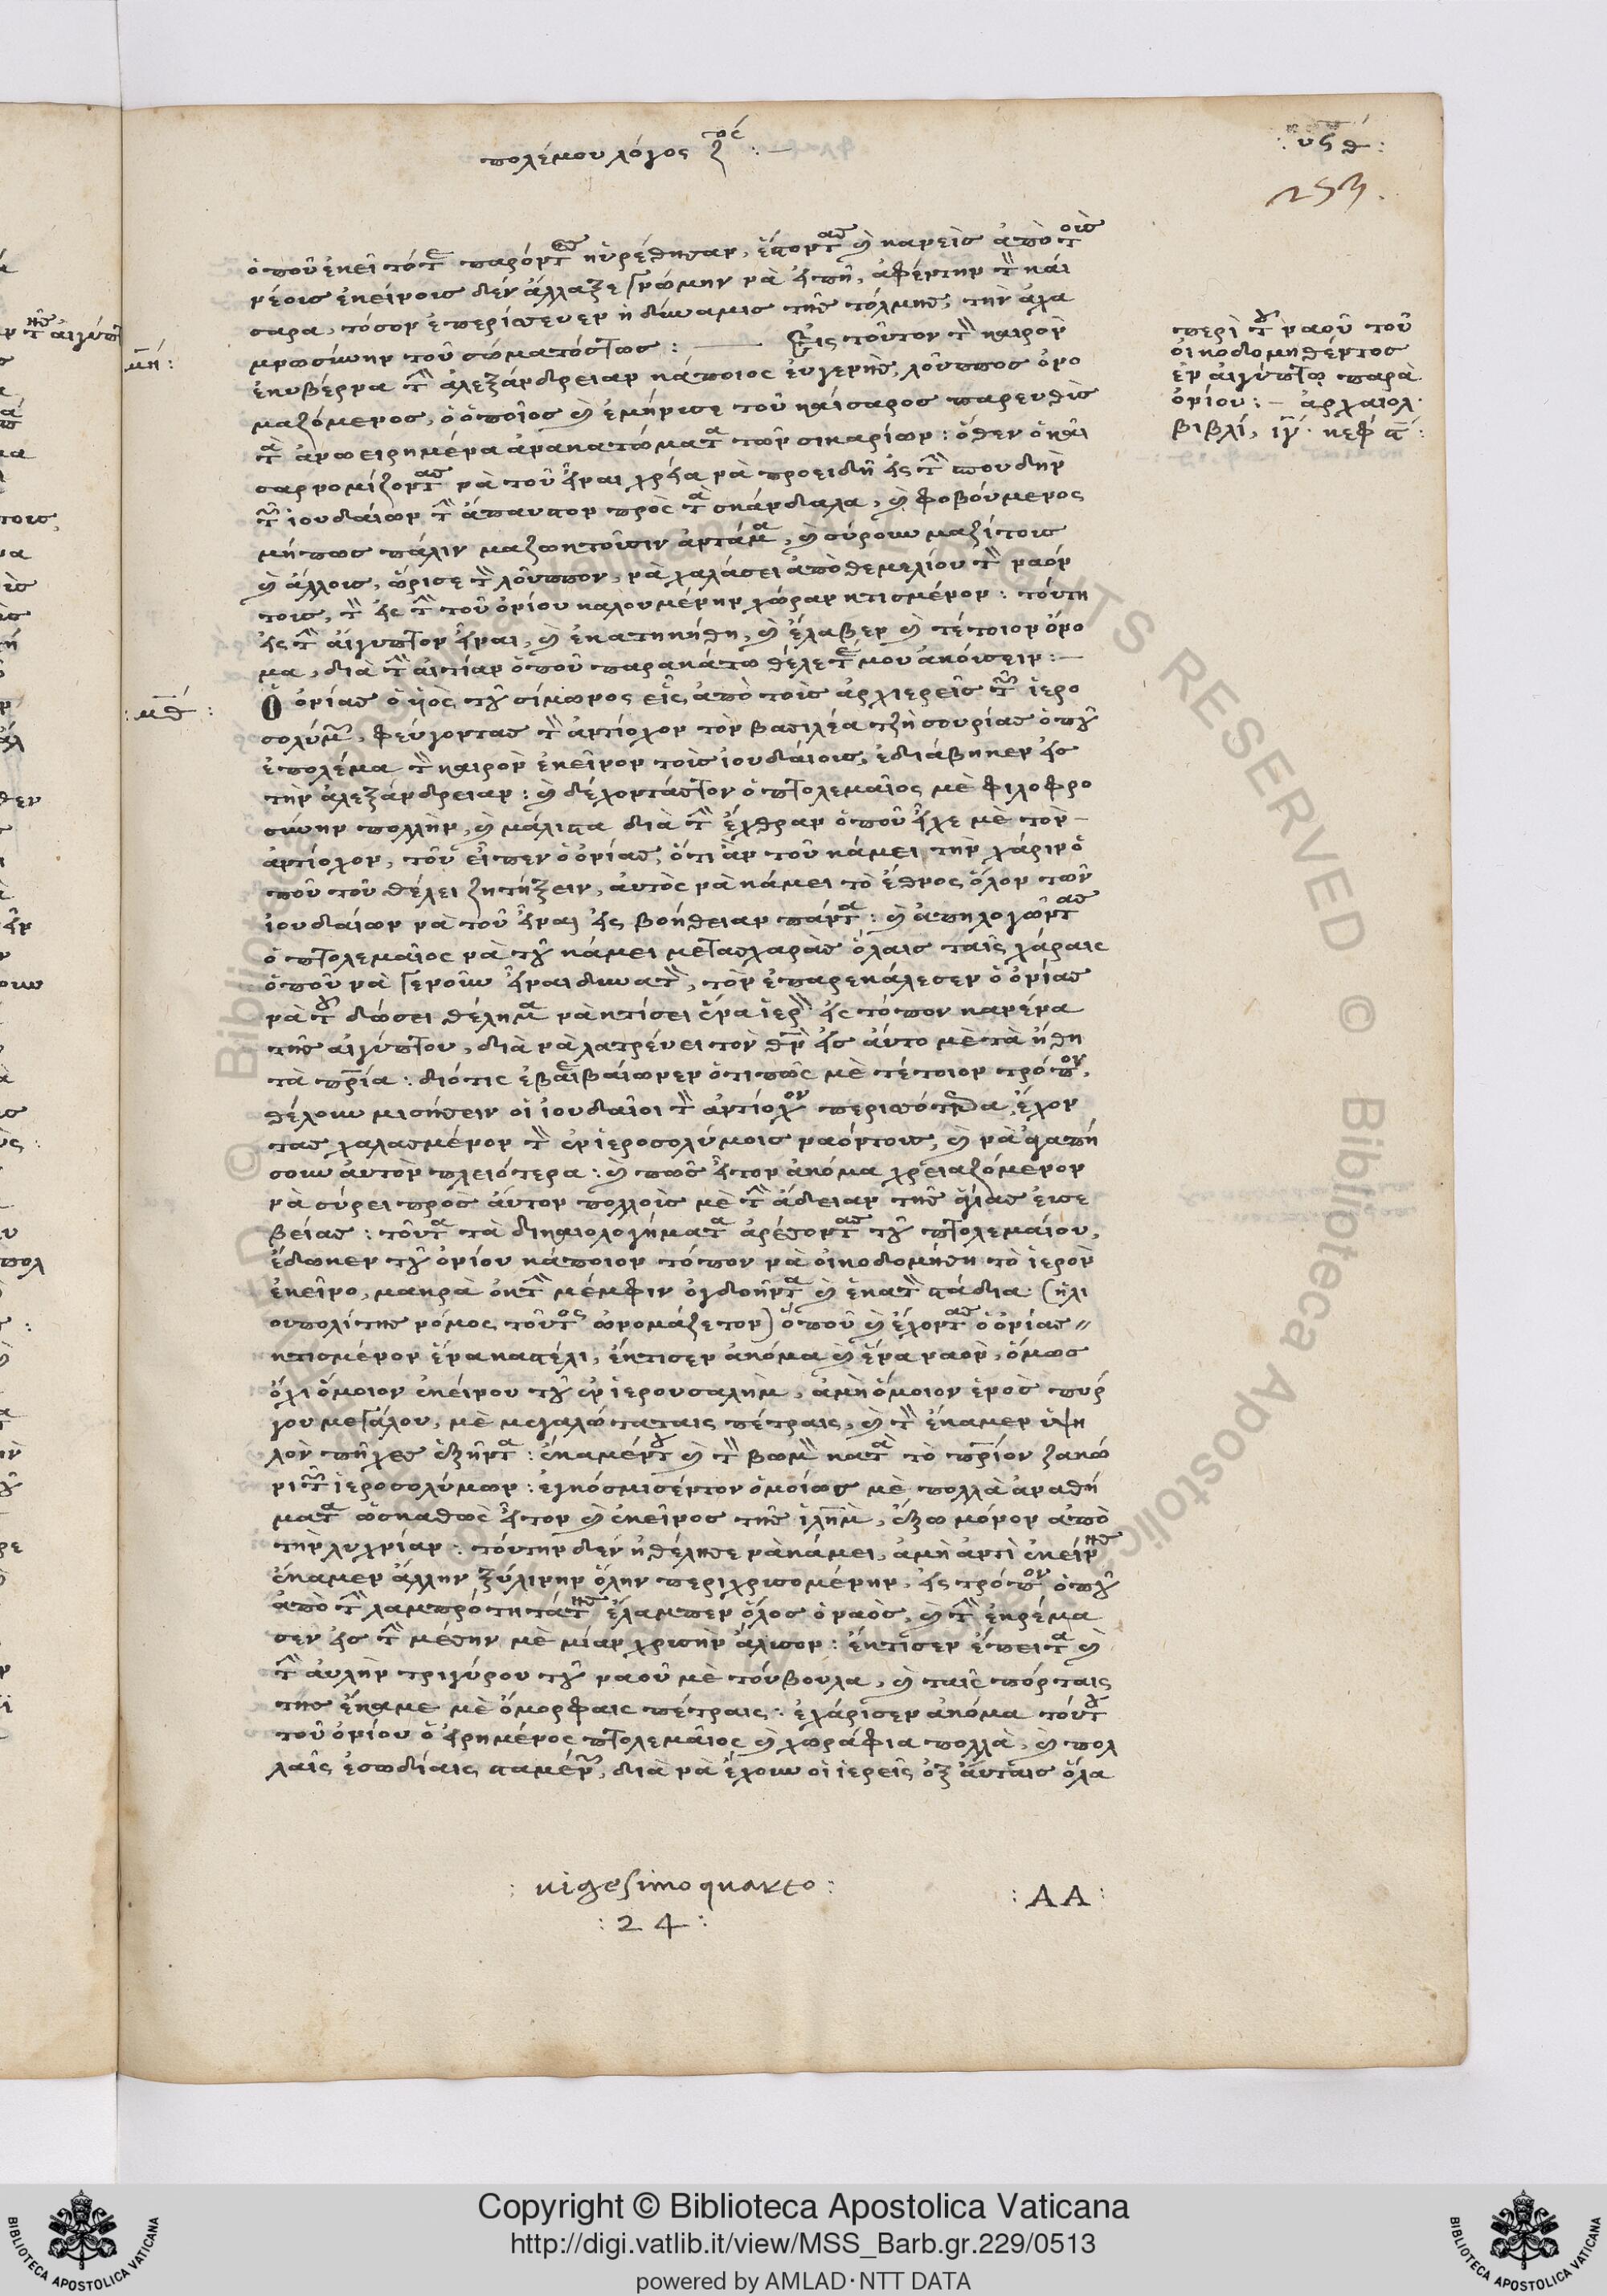 πολέμου λόγος ζ^ος :—
: υϛθ :
253.
ὁποῦ ἐκεῖ τότε παρόντες ηὑρέθησαν, ἔστοντας καὶ κανεὶς ἀπὸ τοὶς
νέοις ἐκείνοις δὲν ἄλλαξε γνώμην νὰ εἰπῇ, ἀφέντην τὸν καί
σαρα, τόσον ἐπερίσσευεν ἡ δύναμις τῆς τόλμης, τὴν ἀχα
μνωσύνην τοῦ σώματόςτως : — Εἰς τοῦτον τὸν καιρὸν
ἐκυβέρνα τὴν ἀλεξάνδρειαν κάποιος εὐγενὴς, λοῦππος ὀνο
μαζόμενος, ὁ ὁποῖος καὶ ἐμήνισε τοῦ καίσαρος παρευθὶς
τὰ ἀνωειρημένα ἀνακατώματα τῶν σικαρίων : ὅθεν ὁ καῖ
σαρ νομίζοντας νὰ τοῦ εἶναι χρεία νὰ προειδῇ εἰς τὴν σπουδὴν
τῶν ἰουδαίων τὴν ἄπαυστον πρὸς τὰ σκάνδαλα, καὶ φοβούμενος
μήπως πάλιν μαζωκτοῦσιν ἀντάμα, καὶ σύρουν μαζίτοις
καὶ ἄλλοις, ὥρισε τὸν λοῦππον, νὰ χαλάσει ἀπὸ θεμελίου τὸν ναόν
τοις, τὸν εἰς τὴν τοῦ ὀνίου καλουμένην χώραν κτισμένον : τούτη
εἰς τὴν αἴγυπτον εἶναι, καὶ ἐκατηκήθη, καὶ ἔλαβεν καὶ τέτοιον ὄνο
μα, διὰ τὴν αἰτίαν ὁποῦ παρακάτω θέλετέ μου ἀκούσειν :—
Ὁ ὀνίας ὁ ὑιὸς τοῦ σίμωνος εἷς ἀπὸ τοὶς ἀρχιερεῖς τῶν ἱερο
σολύμων, φεύγοντας τὸν ἀντίοχον τὸν βασιλέα τζὴ συρίας ὁποῦ
ἐπολέμα τὸν καιρὸν ἐκεῖνον τοὶς ἰουδαίοις, ἐδιάβηκεν εἰς
τὴν ἀλεξάνδρειαν : καὶ δέχοντάςτον ὁ πτολεμαῖος μὲ φιλοφρο
σύνην πολλὴν, καὶ μάλιστα διὰ τὴν ἔχθραν ὁποῦ εἶχε μὲ τὸν —
ἀντίοχον, τοῦ εἶπεν ὁ ὀνίας, ὅτι ἂν τοῦ κάμει τὴν χάριν ὁ
ποῦ τοῦ θέλει ζητήξειν, αὐτὸς νὰ κάμει τὸ ἔθνος ὅλον τῶν
ἰουδαίων νὰ τοῦ εἶναι εἰς βοήθειαν πάντα : καὶ ἀπηλογῶντας
ὁ πτολεμαῖος νὰ τοῦ κάμει μεταςχαρὰς ὅλαις ταῖς χάραις
ὁποῦ νὰ γενοῦν εἶναι δυνατὸν, τὸν ἐπαρεκάλεσεν ὁ ὀνίας
νὰ τοῦ δώσει θέλημα νὰ κτίσει ἕνα ἱερὸν εἰς τόπον κανένα
τῆς αἰγύπτου, διὰ νὰ λατρέυει τὸν θν̄ εἰς αὐτο μὲ τὰ ἤθη
τὰ πρ̄ία : διότις ἐβεβαίωνεν ὅτι πῶς μὲ τέτοιον τρόπον,
θέλουν μισήσειν οἱ ἰουδαῖοι τὸν ἀντίοχον περισσότερα, ἔχον
τας χαλασμένον τὸν ἐν ἱεροσολύμοις ναόντοις, καὶ νὰ ἀγαπή
σουν ἀυτὸν πλειότερα : καὶ πῶς ἦτον ἀκόμα χρειαζόμενον
νὰ σύρει πρὸς αὐτον πολλοὶς μὲ τὴν ἄδειαν τῆς ἁγίας εὐσε
βείας : τοῦτα τὰ δικαιολογήματα ἀρέσοντας τοῦ πτολεμαίου,
ἔδωκεν τοῦ ὀνίου κάποιον τόπον νὰ οἰκοδομήθη τὸ ἱερὸν
ἐκεῖνο, μακρὰ ὀκ τὴν μέμφιν ὀγδοῆντα καὶ ἑκατὸν στάδια (ἡλι
ουπολίτης νόμος τοῦτος ὠνομάζετον) ὁποῦ καὶ ἔχοντας ὁ ὀνίας //
κτισμένον ἕνα καστέλι, ἔκτισεν ἀκόμα καὶ ἕνα ναὸν, ὅμως
ὄχι ὅμοιον ἐκείνου τοῦ ἐν ἱερουσαλὴμ, ἀμὴ ὅμοιον ἑνὸς πύρ
γου μεγάλου, μὲ μεγαλώταταις πέτραις, καὶ τὸν ἔκαμεν ὑψη
λὸν πῆχες ἑξῆντα : ἐκαμέντου καὶ τὸν βωμὸν κατὰ τὸ πρ̄ίον
ρι τῶν ἱεροσολύμων : ἐγκόσμισέντον ὁμοίως μὲ πολλὰ ἀναθή
ματα ὡςκαθὼς ἦτον καὶ ἐκεῖνος τῆς ἰλη̄μ, ἔξω μόνον ἀπὸ
τὴν λυχνίαν : τούτην δὲν ἠθέλησε νὰ κάμει, ἀμὴ ἀντὶ ἐκείνης
ἔκαμεν ἄλλην ξύλινην ὅλην περιχρισομένην, εἰς τρόπον ὁποῦ
ἀπὸ τὴν λαμπρότητάτης ἔλαμπεν ὅλος ὁ ναὸς, καὶ τὴν ἐκρέμα
σεν εἰς τὴν μέσην μὲ μίαν χρισὴν ἄλισον : ἔκτισεν ἔπειτα καὶ
τὴν αὐλὴν τριγύρου τοῦ ναοῦ μὲ τούβουλα, καὶ ταῖς πόρταις
της ἔκαμε μὲ ὄμορφαις πέτραις : ἐχάρισεν ἀκόμα τούτου
τοῦ ὀνίου ὁ εἰρημένος πτολεμαῖος καὶ χωράφια πολλὰ, καὶ πολ
λαῖς ἐσωδίαις σταμένων, διὰ νὰ ἔχουν οἱ ἱερεῖς ὀξ αὐταὶς ὅλα
μη̄ :
: μθ̄ :
περὶ τοῦ ναοῦ τοῦ
οἰκοδομηθέντος
ἐν αἰγύπτῳ παρὰ
ὀνίου :— ἀρχαιολ·
βιβλί, ιγ̄· κεφ ϛ̄ :
: uigesimo quarto :
: 24 :
: AA :
Copyright © Biblioteca Apostolica Vaticana
http://digi.vatlib.it/view/MSS_Barb.gr.229/0513
powered by AMLAD·NTT DATA